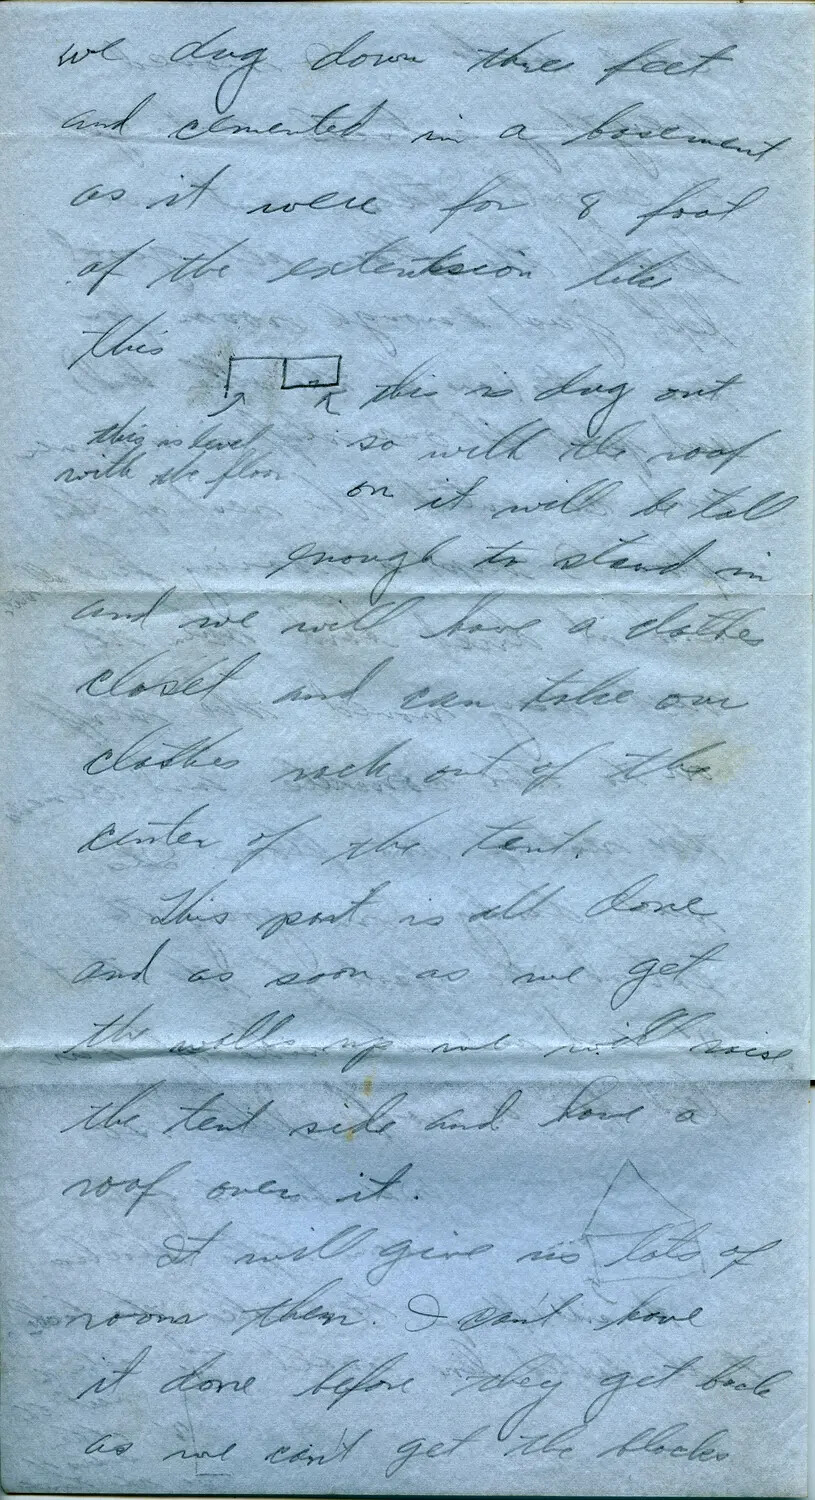 we dug down three feet
and cemented in a basement
as it were for 8 foot
of the extentsion like
this
this is dug out
this is level
with the floor
so with the roof
on it will be tall
enough to stand in
and we will have a clothes
closet and can take our
clothes rack out of the
center of the tent.
This part is all done
and as soon as we get
the walls up we will raise
the tent side and have a
roof over it.
It will give us lots of
room then. I can't have
it done before they get back
as we can't get the blocks